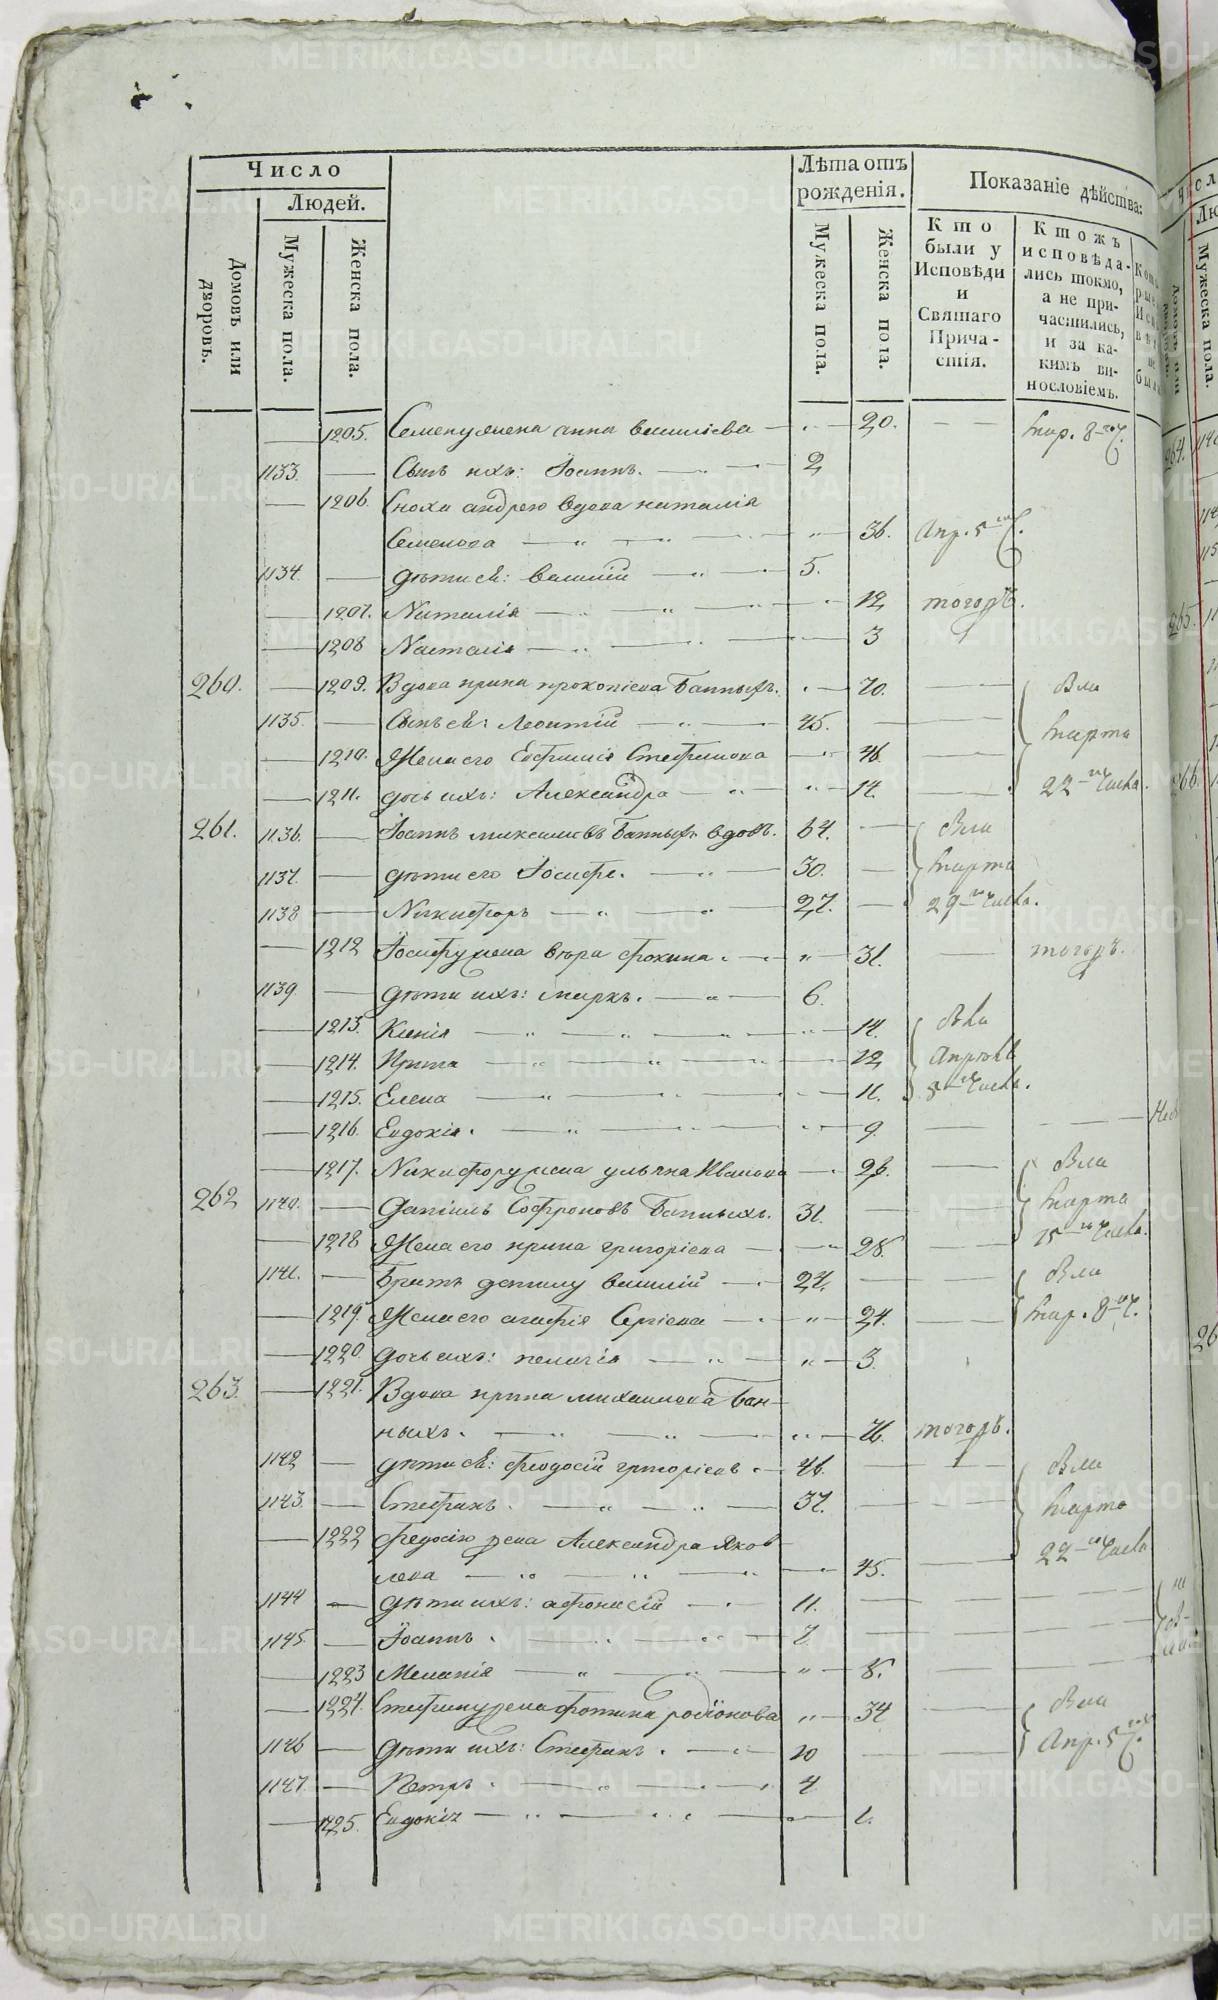 Число
Людей.
Домовъ или дворовъ.
Мужеска пола.
Женска пола.
Лѣта отъ рожденія.
Мужеска пола.
Женска пола.
Показаніе дѣйства:
Кто были у Исповѣди и Святаго Причастія.
Ктожъ исповѣдались токмо, а не причастились, и за какимъ винословіемъ.
1205. Семену жена анна василіева 20. мар. 8 го ч.
1133. Сынъ ихъ: Іоаннъ. 2
1206. Сноха андрею вдова наталія
Семенова 36. Апр. 5 го ч.
1134. дѣти ея: василій 5.
1207. Наталія 12 тогожъ.
1208 Настасія 3
260. 1209. Вдова ирина прокопіева Банныхъ. 70. Вли
1135. Сынъ ея: леонтій 45. марта
1210. Жена его Евфимія Стефанова 46.
1211. дочь ихъ: Александра 14. 22 го числа.
261. 1136. Іоаннъ максимовъ Банныхъ вдовъ. 64. Вли
1137. дѣти его Іосифъ. 30. марта
1138 Никифоръ 27. 29 го числа.
1212 Іосифу жена вѣра фокина. 31. тогожъ.
1139. дѣти ихъ: маркъ. 6.
1213. Ксенія 14.
1214. Ирина 12 Апрѣля
1215. Елена 11. 8 го числа.
1216. Евдокія. 9.
1217. Никифору жена ульяна Иванова 26. Вли
262 1140. Даніилъ Софроновъ Банныхъ. 31. марта
1218 Жена его ирина григоріева 28. 15 го числа.
1141. Братъ данилу василій 27. Вли
1219. Жена его агафія Сергіева 24. мар. 8 го ч.
1220. дочь ихъ: пелагія 3.
263. 1221. Вдова ирина михаилова Бан-
ныхъ. 76. тогожъ.
1142 дѣти ея: феодосій григоріевъ 46. Вли
1143. Стефанъ. 37. марта
1222 федосію жена Александра яков
лева 45. 22 го числа
1144 дѣти ихъ: афонасій 11.
1145. Іоаннъ. 7.
1223 Меланія 8.
1224. Стефану жена фотина родіонова 34 Вли
1146 дѣти ихъ: Стефанъ. 10 Апр. 5 го ч.
1147. Петръ. 4
1225. Евдокія 1.
METRIKI.GASO-URAL.RU